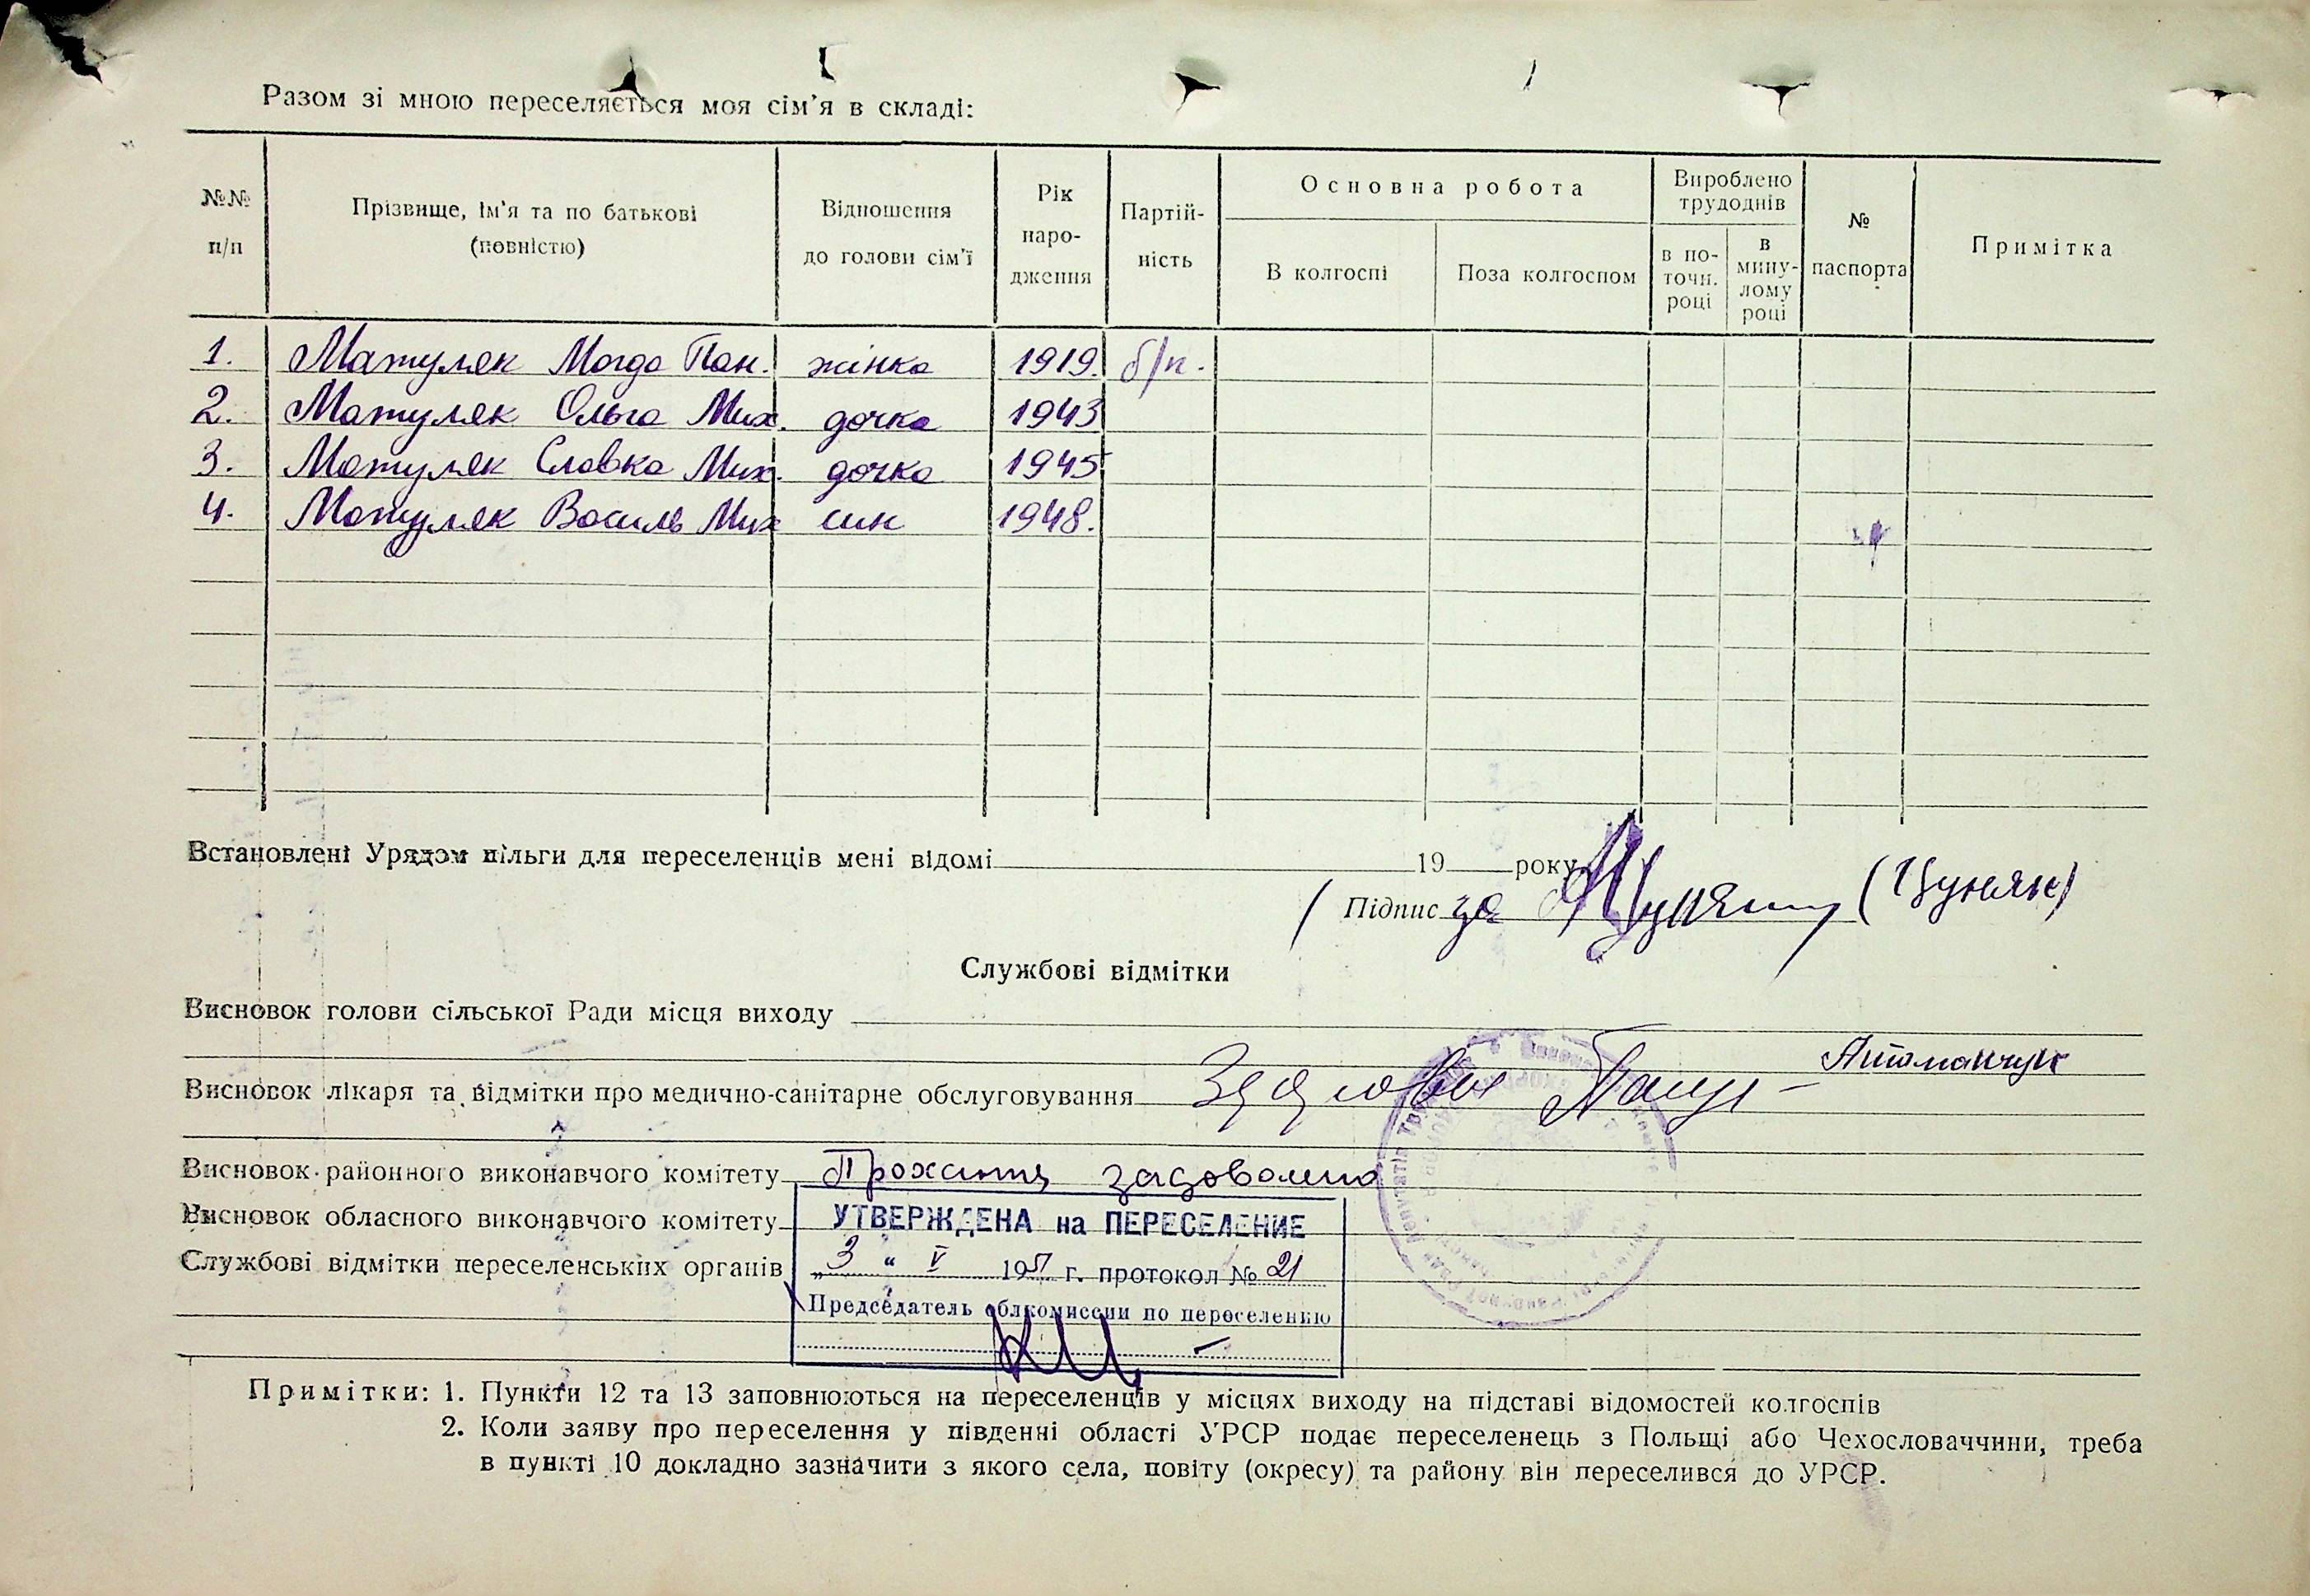 Разом зі мною переселяється моя сім'я в складі:
№№ п/п
Прізвище, ім'я та по батькові (повністю)
Відношення до голови сім'ї
Рік наро-дження
Партій-ність
Основна робота
В колгоспі
Поза колгоспом
Вироблено трудоднів
в по-точн. році
в мину-лому році
№ паспорта
Примітка
1. Матуляк Магда Пан. жінка 1919. б/п.
2. Матуляк Ольга Мих. дочка 1943
3. Матуляк Славка Мих. дочка 1945
4. Матуляк Василь Мих син 1948.
Встановлені Урядом пільги для переселенців мені відомі 19 року
Підпис за (Цуняк)
Службові відмітки
Висновок голови сільської Ради місця виходу
Висновок лікаря та відмітки про медично-санітарне обслуговування
Висновок районного виконавчого комітету Прохання задоволено
Висновок обласного виконавчого комітету
УТВЕРЖДЕНА на ПЕРЕСЕЛЕНИЕ
Службові відмітки переселенських органів
„3 " V 1951 г. протокол № 21
Председатель облкомиссии по переселению
Примітки: 1. Пункти 12 та 13 заповнюються на переселенців у місцях виходу на підставі відомостей колгоспів
2. Коли заяву про переселення у південні області УРСР подає переселенець з Польщі або Чехословаччини, треба
в пункті 10 докладно зазначити з якого села, повіту (окресу) та району він переселився до УРСР.